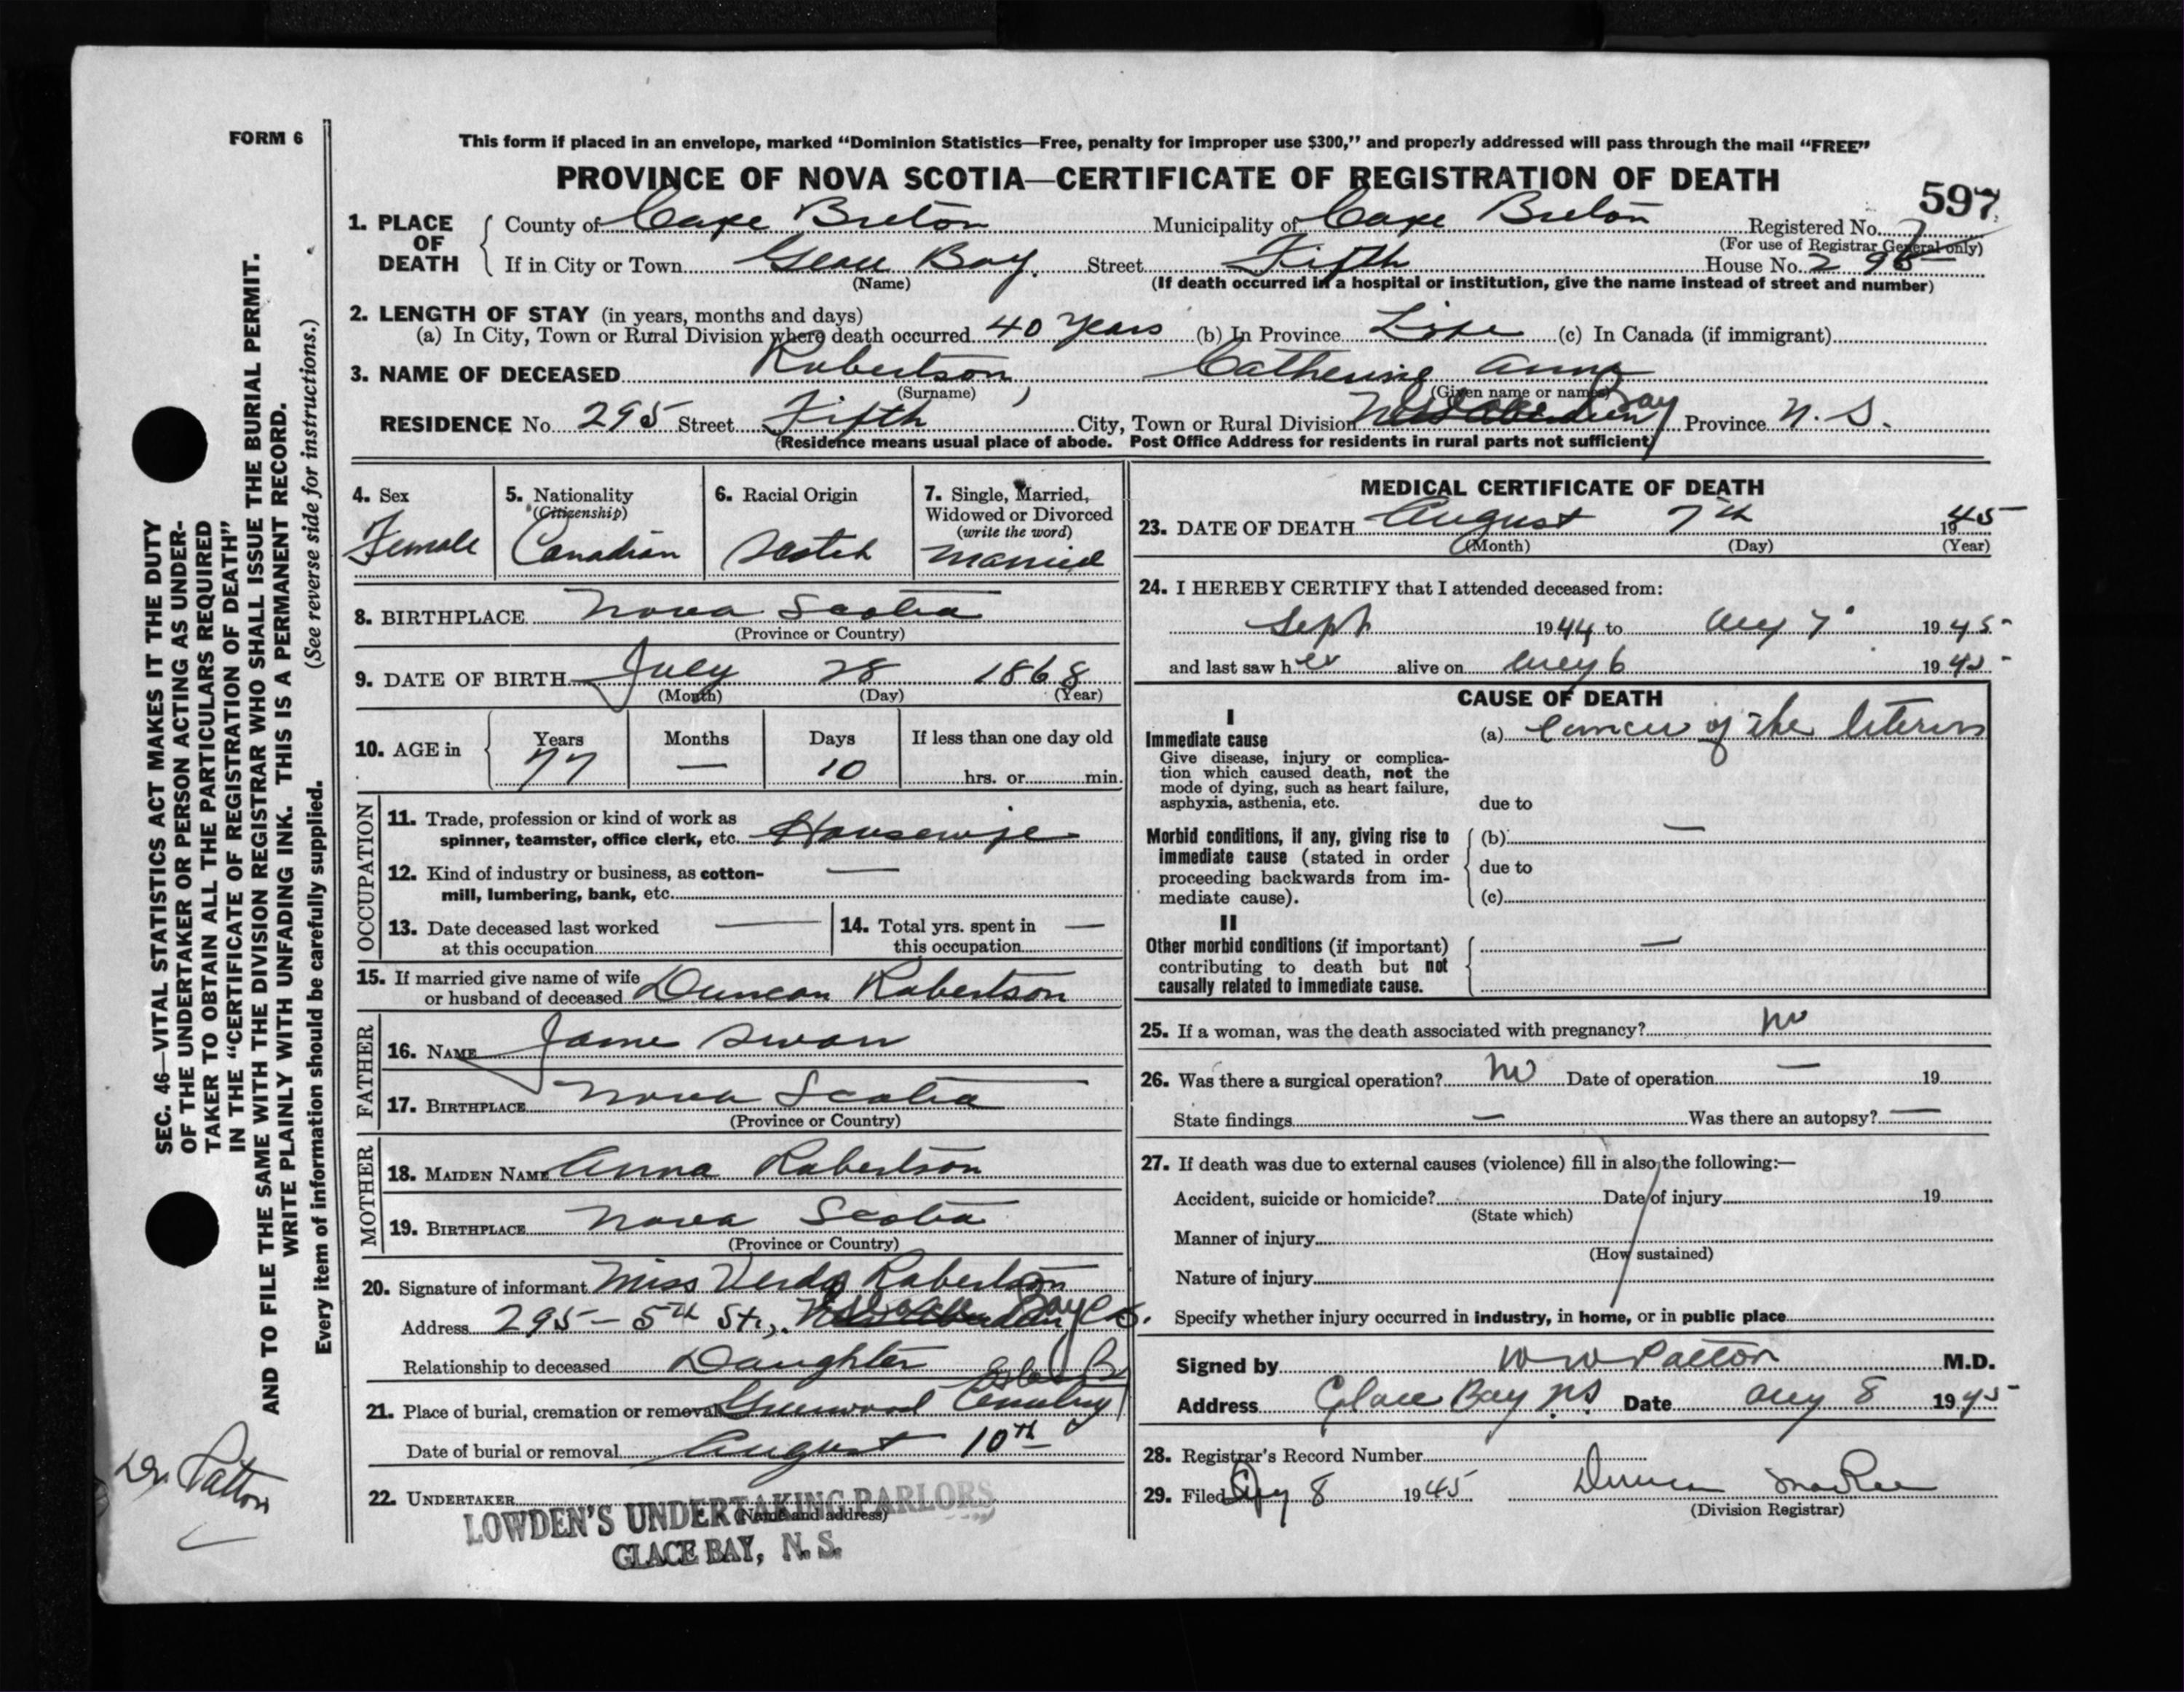 FORM 6
This form if placed in an envelope, marked “Dominion Statistics—Free, penalty for improper use $300,” and properly addressed will pass through the mail “FREE”
PROVINCE OF NOVA SCOTIA—CERTIFICATE OF REGISTRATION OF DEATH
597
1. PLACE OF DEATH
County of Cape Breton Municipality of Cape Breton Registered No.
(For use of Registrar General only)
If in City or Town Glace Bay. Street Fifth House No. 295
(Name) (If death occurred in a hospital or institution, give the name instead of street and number)
2. LENGTH OF STAY (in years, months and days)
(a) In City, Town or Rural Division where death occurred 40 years (b) In Province Life (c) In Canada (if immigrant)
3. NAME OF DECEASED Robertson, Catherine Anna
(Surname) (Given name or names)
RESIDENCE No. 295 Street Fifth City, Town or Rural Division Bay Province N. S.
(Residence means usual place of abode. Post Office Address for residents in rural parts not sufficient)
4. Sex
Female
5. Nationality
(Citizenship)
Canadian
6. Racial Origin
Scotch
7. Single, Married,
Widowed or Divorced
(write the word)
Married
8. BIRTHPLACE Nova Scotia
(Province or Country)
9. DATE OF BIRTH July 28 1868
(Month) (Day) (Year)
10. AGE in
Years Months Days If less than one day old
77 — 10 hrs. or min.
OCCUPATION
11. Trade, profession or kind of work as
spinner, teamster, office clerk, etc. Housewife
12. Kind of industry or business, as cotton-
mill, lumbering, bank, etc. —
13. Date deceased last worked
at this occupation —
14. Total yrs. spent in
this occupation —
15. If married give name of wife
or husband of deceased Duncan Robertson
FATHER
16. NAME James Swan
17. BIRTHPLACE Nova Scotia
(Province or Country)
MOTHER
18. MAIDEN NAME Anna Robertson
19. BIRTHPLACE Nova Scotia
(Province or Country)
20. Signature of informant Miss Verda Robertson
Address 295 – 5th St., Bay C.B.
Relationship to deceased Daughter
21. Place of burial, cremation or removal Greenwood Cemetery
Date of burial or removal August 10th
22. UNDERTAKER
(Name and address)
LOWDEN'S UNDERTAKING PARLORS
GLACE BAY, N. S.
MEDICAL CERTIFICATE OF DEATH
23. DATE OF DEATH August 7th 1945
(Month) (Day) (Year)
24. I HEREBY CERTIFY that I attended deceased from:
Sept 1944 to Aug 7 1945
and last saw her alive on Aug 6 1945
CAUSE OF DEATH
I
Immediate cause
Give disease, injury or complica-
tion which caused death, not the
mode of dying, such as heart failure,
asphyxia, asthenia, etc.
(a) Cancer of the Uterus
due to
Morbid conditions, if any, giving rise to
immediate cause (stated in order
proceeding backwards from im-
mediate cause).
(b) —
due to
(c)
II
Other morbid conditions (if important)
contributing to death but not
causally related to immediate cause.
—
25. If a woman, was the death associated with pregnancy? no
26. Was there a surgical operation? no Date of operation — 19
State findings — Was there an autopsy? —
27. If death was due to external causes (violence) fill in also the following:—
Accident, suicide or homicide? Date of injury 19
(State which)
Manner of injury
(How sustained)
Nature of injury
Specify whether injury occurred in industry, in home, or in public place
Signed by W W Patton M.D.
Address Glace Bay N.S Date Aug 8 1945
28. Registrar's Record Number
29. Filed Aug 8 1945 Duncan MacRae
(Division Registrar)
SEC. 46—VITAL STATISTICS ACT MAKES IT THE DUTY
OF THE UNDERTAKER OR PERSON ACTING AS UNDER-
TAKER TO OBTAIN ALL THE PARTICULARS REQUIRED
IN THE “CERTIFICATE OF REGISTRATION OF DEATH”
AND TO FILE THE SAME WITH THE DIVISION REGISTRAR WHO SHALL ISSUE THE BURIAL PERMIT.
WRITE PLAINLY WITH UNFADING INK. THIS IS A PERMANENT RECORD.
Every item of information should be carefully supplied. (See reverse side for instructions.)
Dr. Patton